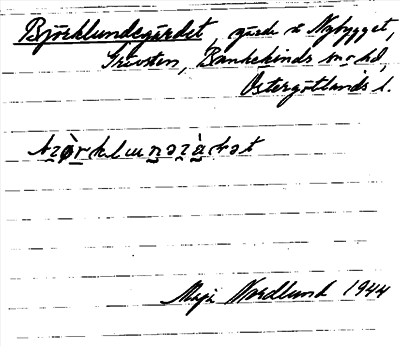 Björklundsgärdet, gärde å Nybygget,
Grävsten, Bankekinds sn o hd,
Östergötlands l.
Maja Nordlund 1944